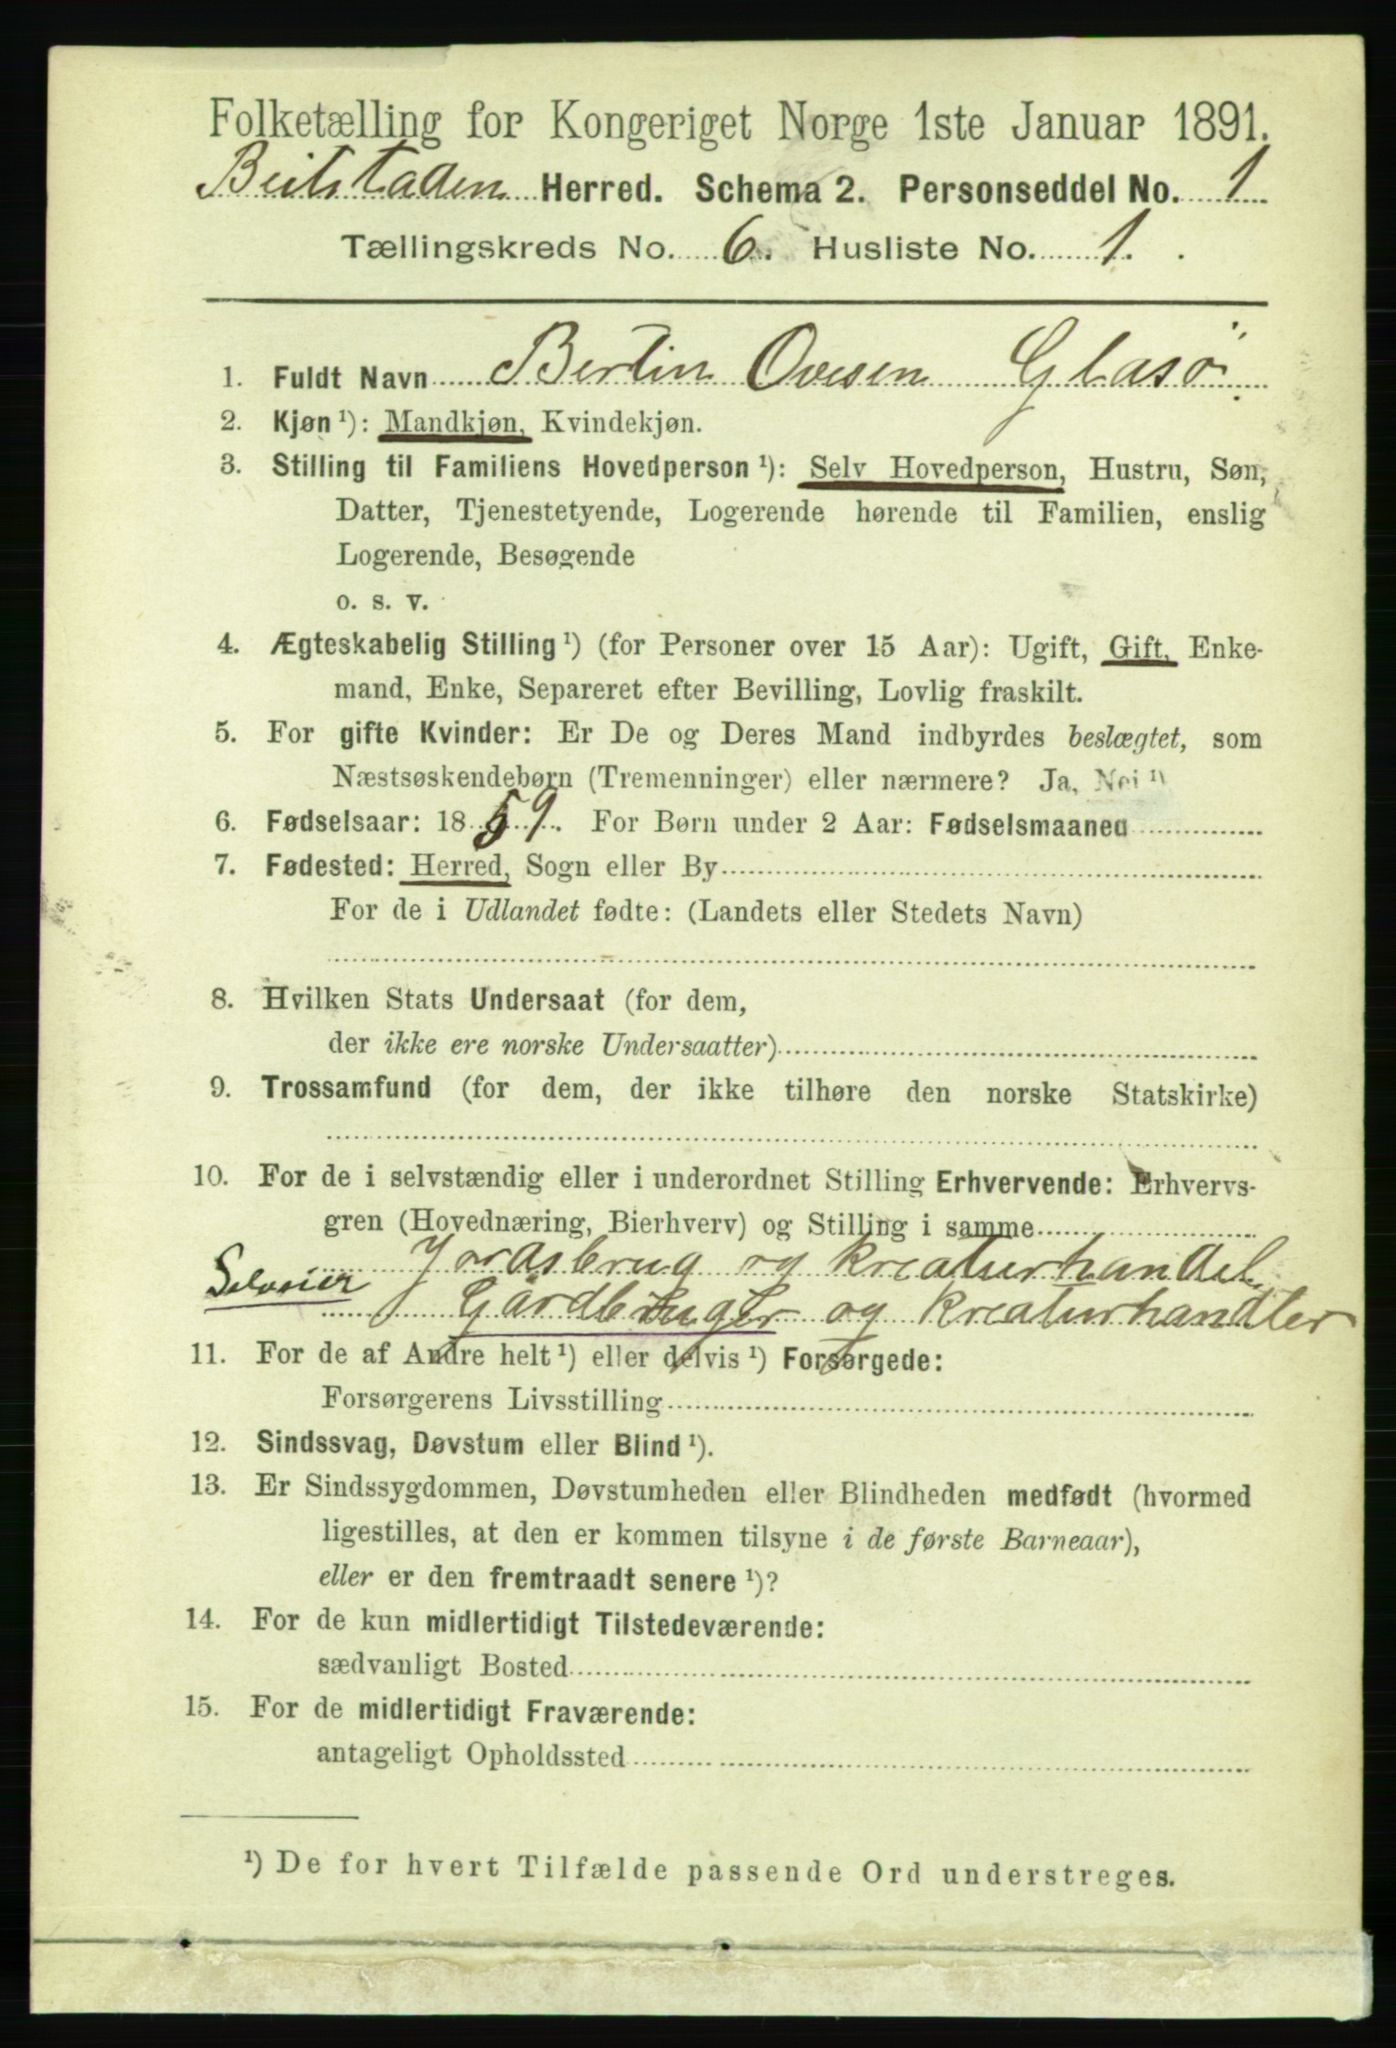 Folketælling for Kongeriget Norge 1ste Januar 1891.
Beitstaden Herred. Schema 2. Personseddel No. 1
Tællingskreds No. 6. Husliste No. 1.
1. Fuldt Navn Bertin Ovesen Glasø
2. Kjøn ¹): Mandkjøn, Kvindekjøn.
3. Stilling til Familiens Hovedperson ¹): Selv Hovedperson, Hustru, Søn,
Datter, Tjenestetyende, Logerende hørende til Familien, enslig
Logerende, Besøgende
o. s. v.
4. Ægteskabelig Stilling ¹) (for Personer over 15 Aar): Ugift, Gift, Enke-
mand, Enke, Separeret efter Bevilling, Lovlig fraskilt.
5. For gifte Kvinder: Er De og Deres Mand indbyrdes beslægtet, som
Næstsøskendebørn (Tremenninger) eller nærmere? Ja, Nei ¹)
6. Fødselsaar: 1859. For Børn under 2 Aar: Fødselsmaaned
7. Fødested: Herred, Sogn eller By
For de i Udlandet fødte: (Landets eller Stedets Navn)
8. Hvilken Stats Undersaat (for dem,
der ikke ere norske Undersaatter)
9. Trossamfund (for dem, der ikke tilhøre den norske Statskirke)
10. For de i selvstændig eller i underordnet Stilling Erhvervende: Erhvervs-
gren (Hovednæring, Bierhverv) og Stilling i samme
Jordsbrug og kreaturhandel
Selveier Gårdbruger og kreaturhandler
11. For de af Andre helt ¹) eller delvis ¹) Forsørgede:
Forsørgerens Livsstilling
12. Sindssvag, Døvstum eller Blind ¹).
13. Er Sindssygdommen, Døvstumheden eller Blindheden medfødt (hvormed
ligestilles, at den er kommen tilsyne i de første Barneaar),
eller er den fremtraadt senere ¹)?
14. For de kun midlertidigt Tilstedeværende:
sædvanligt Bosted
15. For de midlertidigt Fraværende:
antageligt Opholdssted
¹) De for hvert Tilfælde passende Ord understreges.